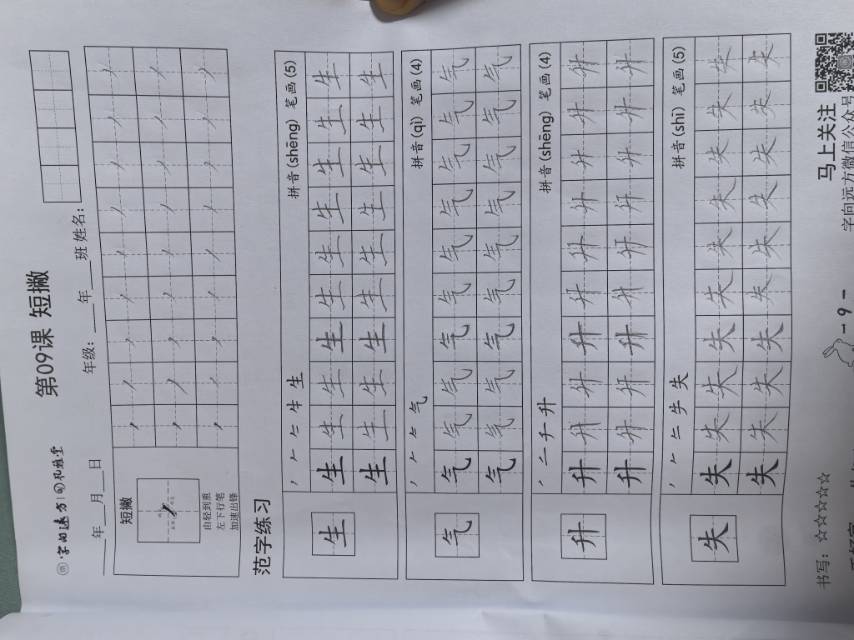 字向远方
第09课 短撇
___年___月___日 年级：___年___班 姓名：
短撇
由轻到重
左下行笔
加速出锋
范字练习
拼音(shēng) 笔画(5)
生 生 生 生 生 生 生 生 生 生 生
生 生 生 生 生 生 生 生 生 生
拼音(qì) 笔画(4)
气
气 气 气 气 气 气 气 气 气 气 气
气 气 气 气 气 气 气 气 气 气
拼音(shēng) 笔画(4)
升
升 升 升 升 升 升 升 升 升 升 升
升 升 升 升 升 升 升 升 升 升
拼音(shī) 笔画(5)
失
失 失 失 失 失 失 失 失 失 失 失
失 失 失 失 失 失 失 失 失 失
书写：☆☆☆☆☆
- 9 -
马上关注
字向远方微信公众号